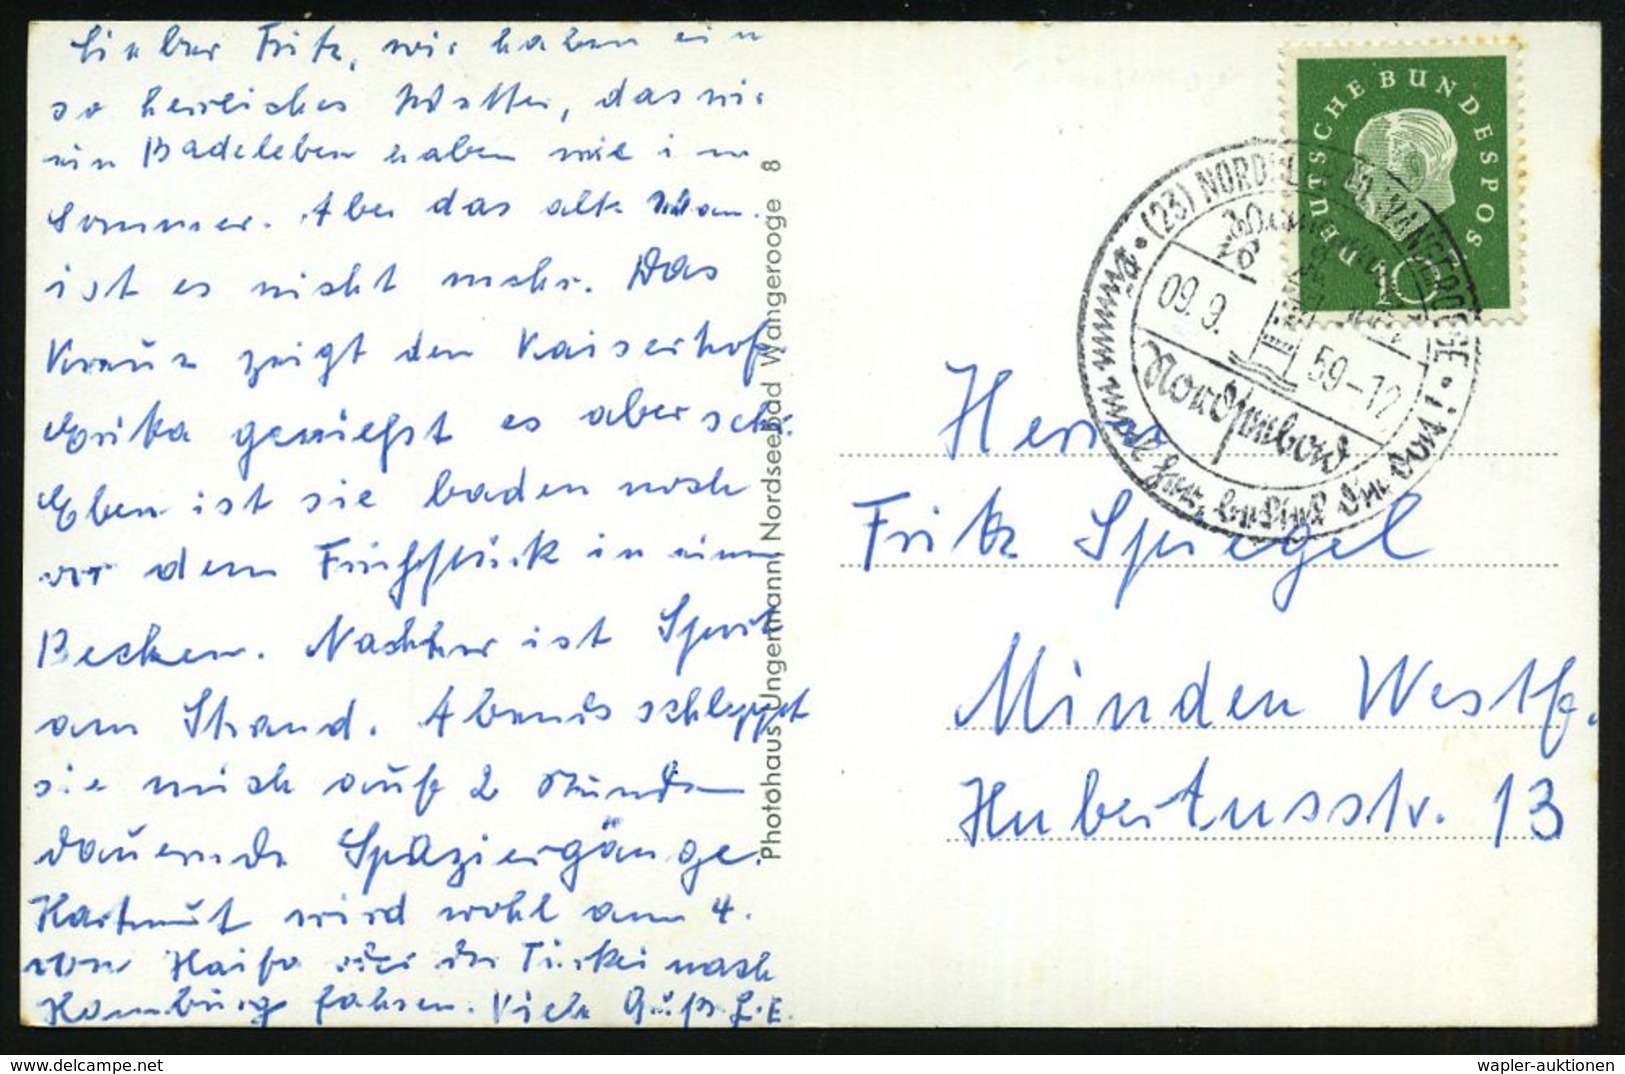 Lieber Fritz, wir haben ein
so herrliches Wetter, das wir
ein Badeleben haben wie im
Sommer. Aber das alte Wan.
ist es nicht mehr. Das
Kreuz zeigt den Kaiserhof.
Erika genießt es aber sehr.
Eben ist sie baden noch
vor dem Frühstück in einem
Becken. Nachher ist Sport
am Strand. Abends schleppt
sie mich auf 2 Stunden
dauernde Spaziergänge.
Hartmut wird wohl am 4.
von Haifa über die Türkei nach
Hamburg fahren. Viele Grüße E.E.
Photohaus Ungermann Nordseebad Wangerooge 8
DEUTSCHE BUNDESPOST
10
(23) NORDSEEBAD WANGEROOGE
09.9.
59-12
Herrn
Fritz Spiegel
Minden Westf.
Hubertusstr. 13
https://www.delcampe.net
wapler-auktionen